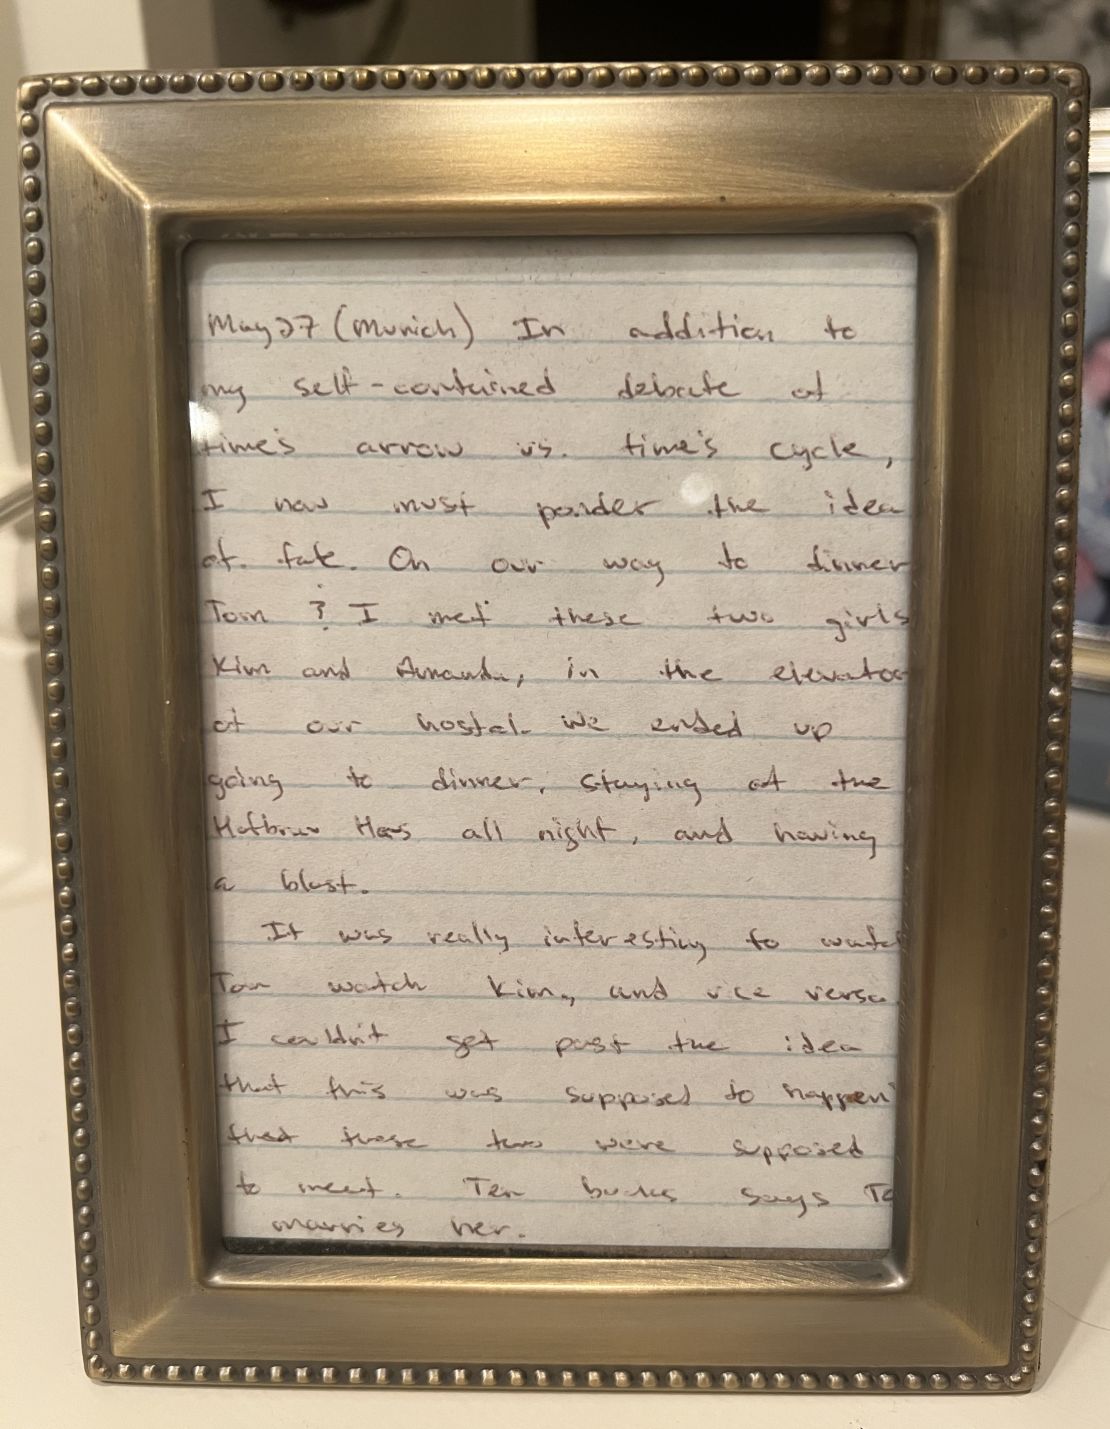 May 27 (Munich) In addition to
my self-contained debate of
time's arrow vs. time's cycle,
I now must ponder the idea
of fate. On our way to dinner
Tom & I met these two girls
Kim and Amanda, in the elevator
at our hostel. We ended up
going to dinner, staying at the
Hofbrau Haus all night, and having
a blast.
It was really interesting to watch
Tom watch Kim, and vice versa.
I couldn't get past the idea
that this was supposed to happen
that these two were supposed
to meet. Ten bucks says To
marries her.